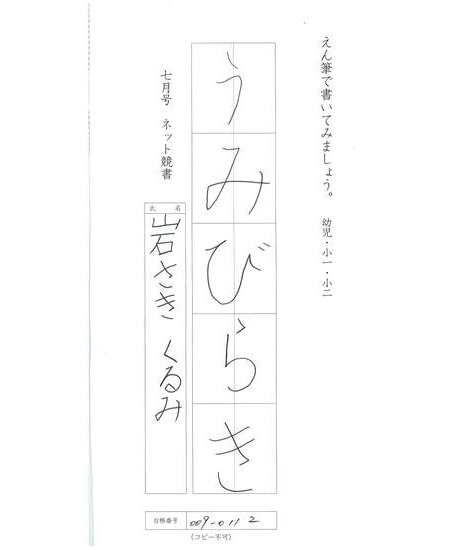 えん筆で書いてみましょう。 幼児・小一・小二
うみびらき
七月号 ネット競書
氏 名
岩さき くるみ
台帳番号 009-011 2
(コピー不可)